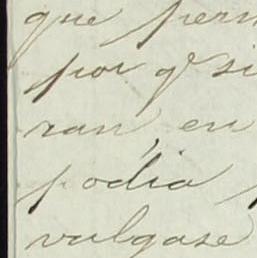 que perm
por q.e si
ran, en
podia
vulgase